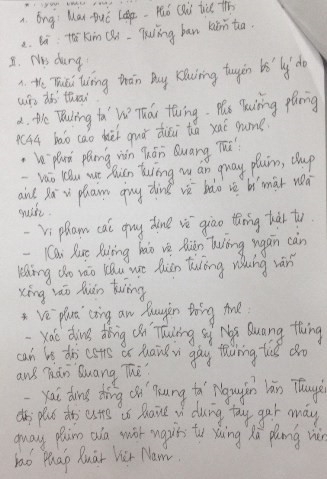 1. Ông: Mai Đức Lộc - Phó Chủ tịch TT
2. Bà: Hồ Kim Chi - Trưởng ban kiểm tra.
II. Nội dung:
1. Đ/c Thiếu tướng Đoàn Duy Khương tuyên bố lý do
cuộc đối thoại.
2. Đ/c Thượng tá Vũ Thái Hưng - Phó Trưởng phòng
PC44 báo cáo kết quả điều tra xác minh.
* Về phía phóng viên Trần Quang Thế:
- Vào khu vực hiện trường vụ án quay phim, chụp
ảnh là vi phạm quy định về bảo vệ bí mật nhà
nước.
- Vi phạm các quy định về giao thông trật tự.
- Khi lực lượng bảo vệ hiện trường ngăn cản
không cho vào khu vực hiện trường nhưng vẫn
xông vào hiện trường.
* Về phía công an huyện Đông Anh:
- Xác định đồng chí Thượng sỹ Ngô Quang Hưng
cán bộ đội CSHS có hành vi gây thương tích cho
anh Trần Quang Thế.
- Xác định đồng chí Trung tá Nguyễn Văn Thuyên
đội phó đội CSHS có hành vi dùng tay gạt máy
quay phim của một người tự xưng là phóng viên
báo Pháp luật Việt Nam.